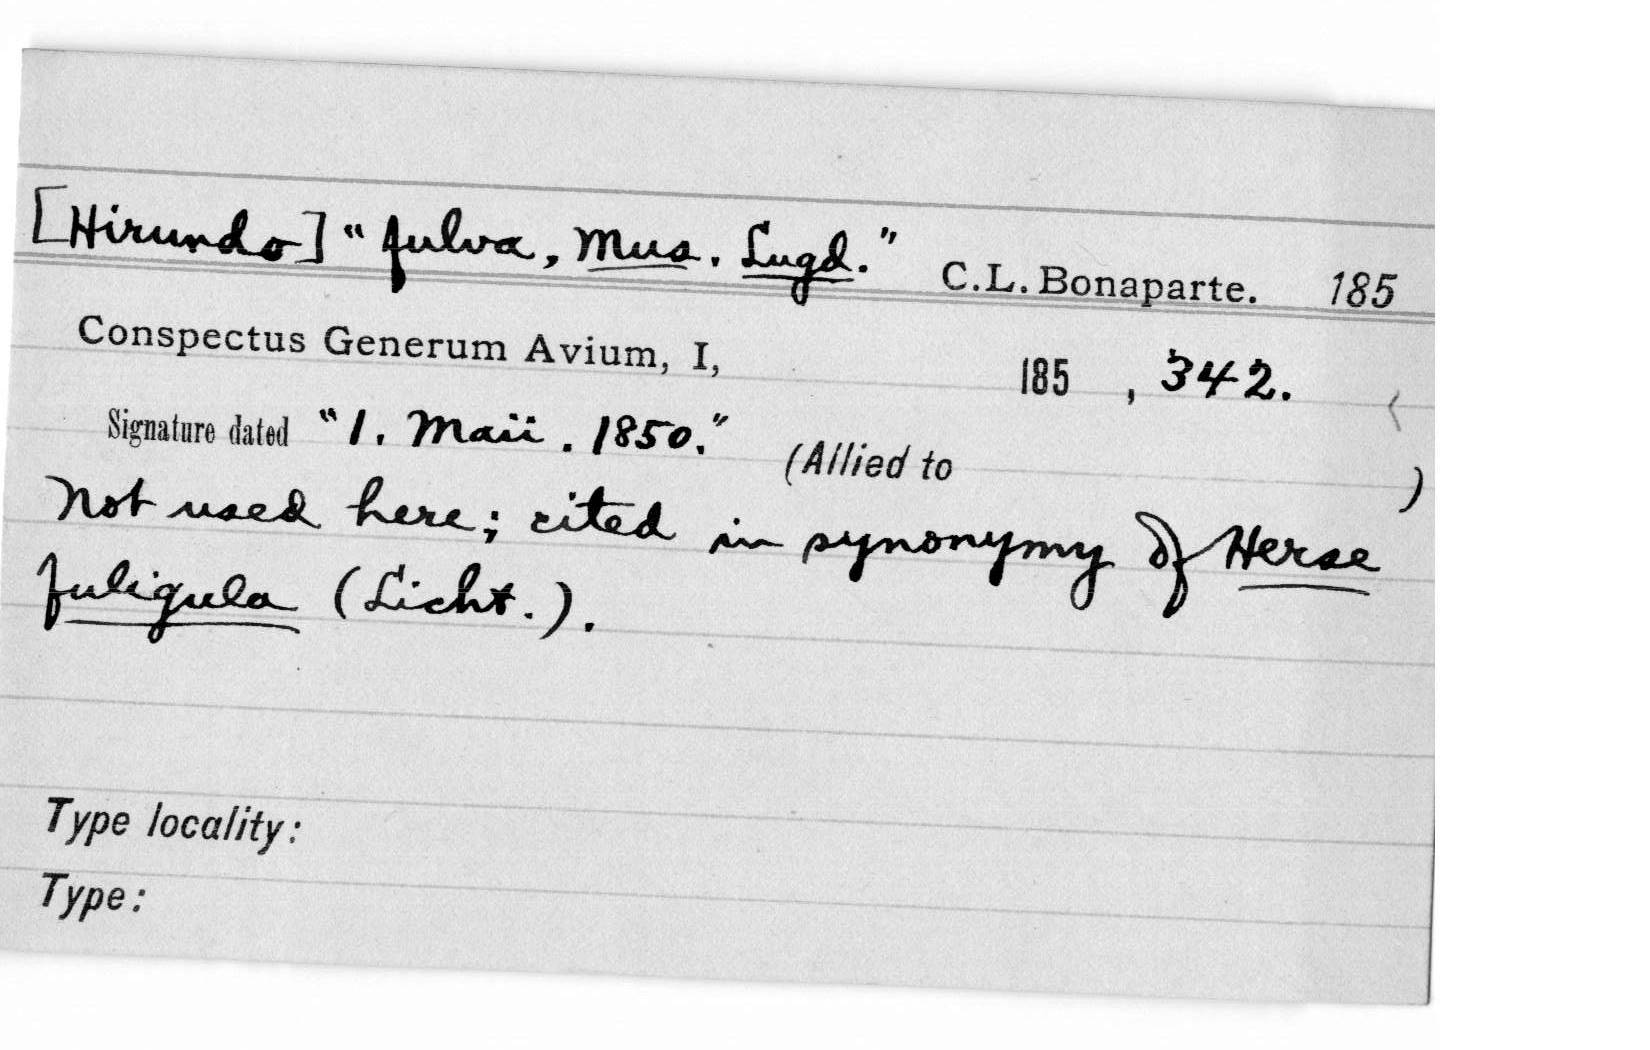 [Hirundo] "fulva, Mus. Lugd." C.L. Bonaparte. 185
Conspectus Generum Avium, I, 185 , 342.
Signature dated "1. Maii. 1850." (Allied to )
Not used here; cited in synonymy of Herse
fuligula (Licht.).
Type locality:
Type: